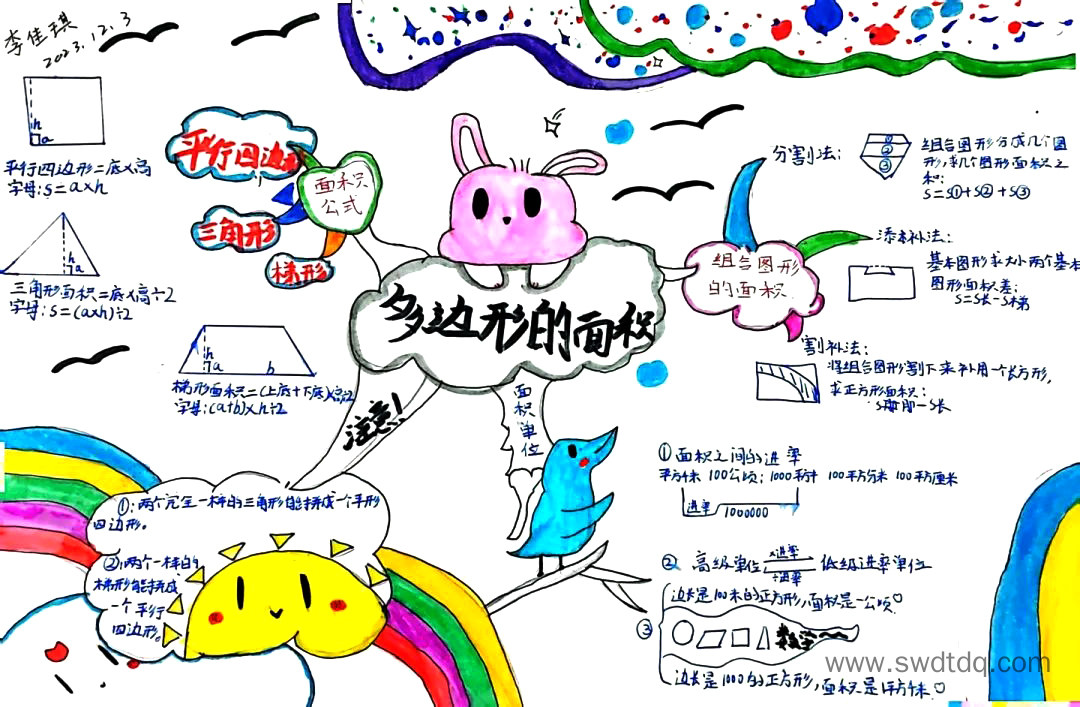 李佳琪
2023.12.3
平行四边形=底×高
字母:S=a×h
三角形面积=底×高÷2
字母:S=(a×h)÷2
梯形面积=(上底+下底)×高÷2
字母:(a+b)×h÷2
h
a
h
a
h
a
b
平行四边形
三角形
梯形
面积
公式
多边形的面积
组合图形
的面积
分割法:
①
②
③
组合图形分成几个图
形,求几个图形面积之
和:
S=S①+S②+S③
添补法:
基本图形求大小两个基本
图形面积差:
S=S长-S梯
割补法:
将组合图形割下来补用一个长方形,
求正方形面积:
注意!
面积单位
①:两个完全一样的三角形能拼成一个平形
四边形。
②:两个一样的
梯形能拼成
一个平行
四边形。
①面积之间的进率
100公顷
100平方分米 100平方厘米
进率 1000000
②高级单位
×进率
÷进率
低级进率单位
③
边长是100米的正方形,面积是一公顷
数学
边长是1000的正方形,面积是1平方千米
www.swdtdq.com